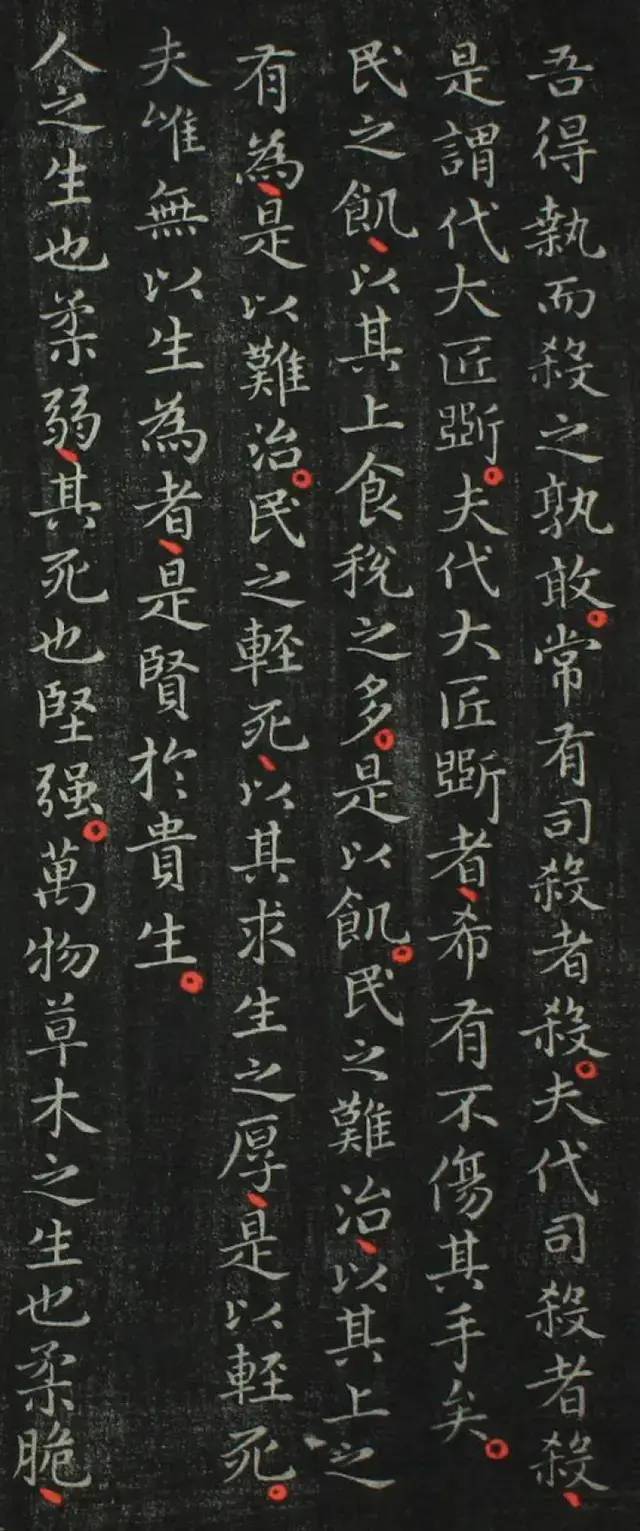 吾得執而殺之孰敢。常有司殺者殺。夫代司殺者殺、
是謂代大匠斲。夫代大匠斲者、希有不傷其手矣。
民之飢、以其上食稅之多。是以飢。民之難治、以其上之
有為、是以難治。民之輕死、以其求生之厚、是以輕死。
夫唯無以生為者、是賢於貴生。
人之生也柔弱、其死也堅强。萬物草木之生也柔脆、